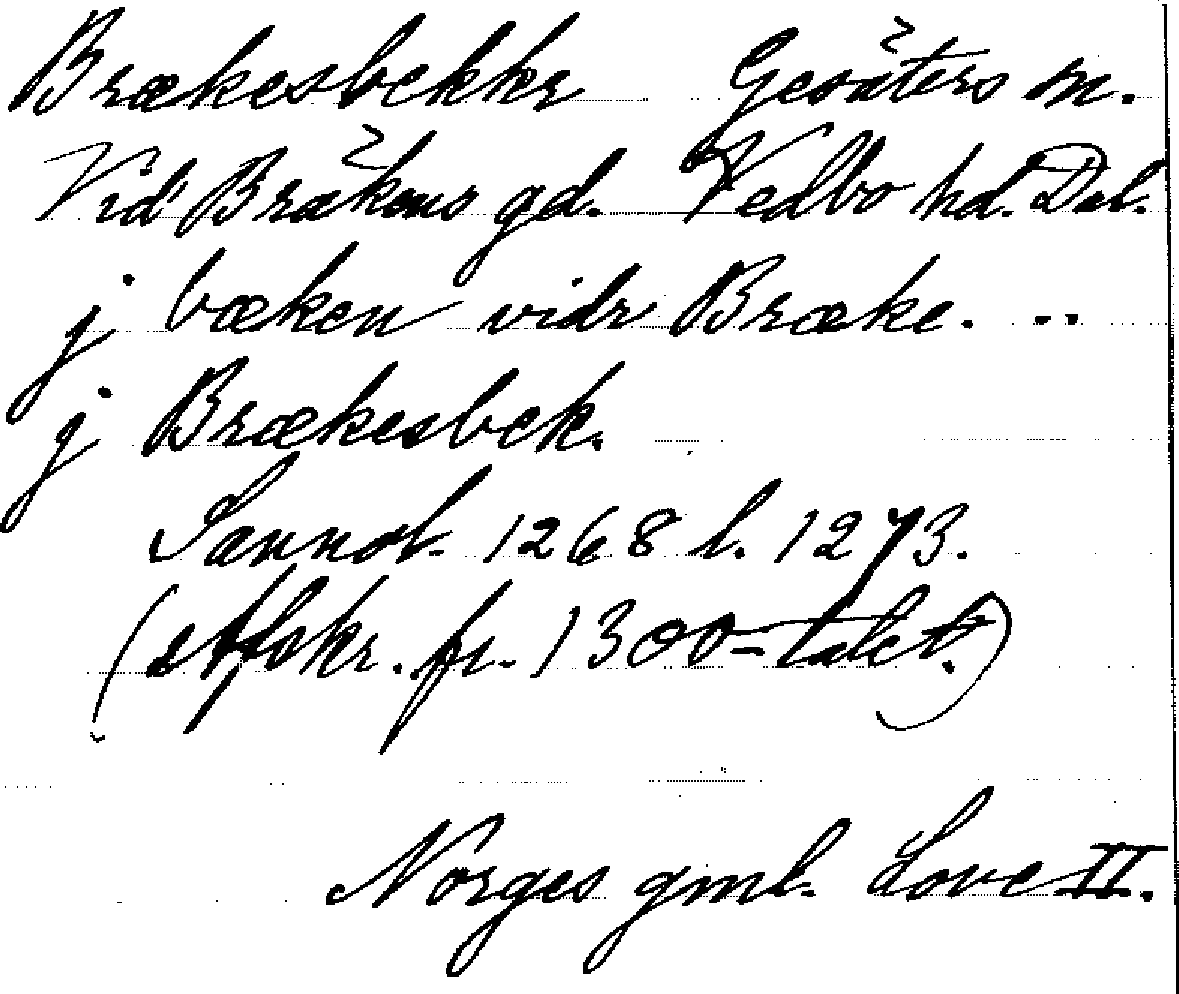 Brækesbekkr Gesäters sn.
Vid Bräkons gd. Vedbo hd. Dal.
j bæken vidr Bræke. ..
j Brækesbek.
Sannol. 1268 l. 1273.
(Afskr. fr. 1300-talet.)
Norges gml. Love II.